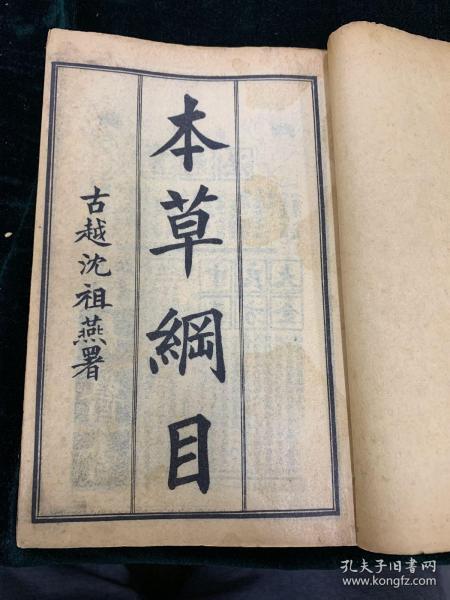 本草綱目
古越沈祖燕署
孔夫子旧书网
www.kongfz.com